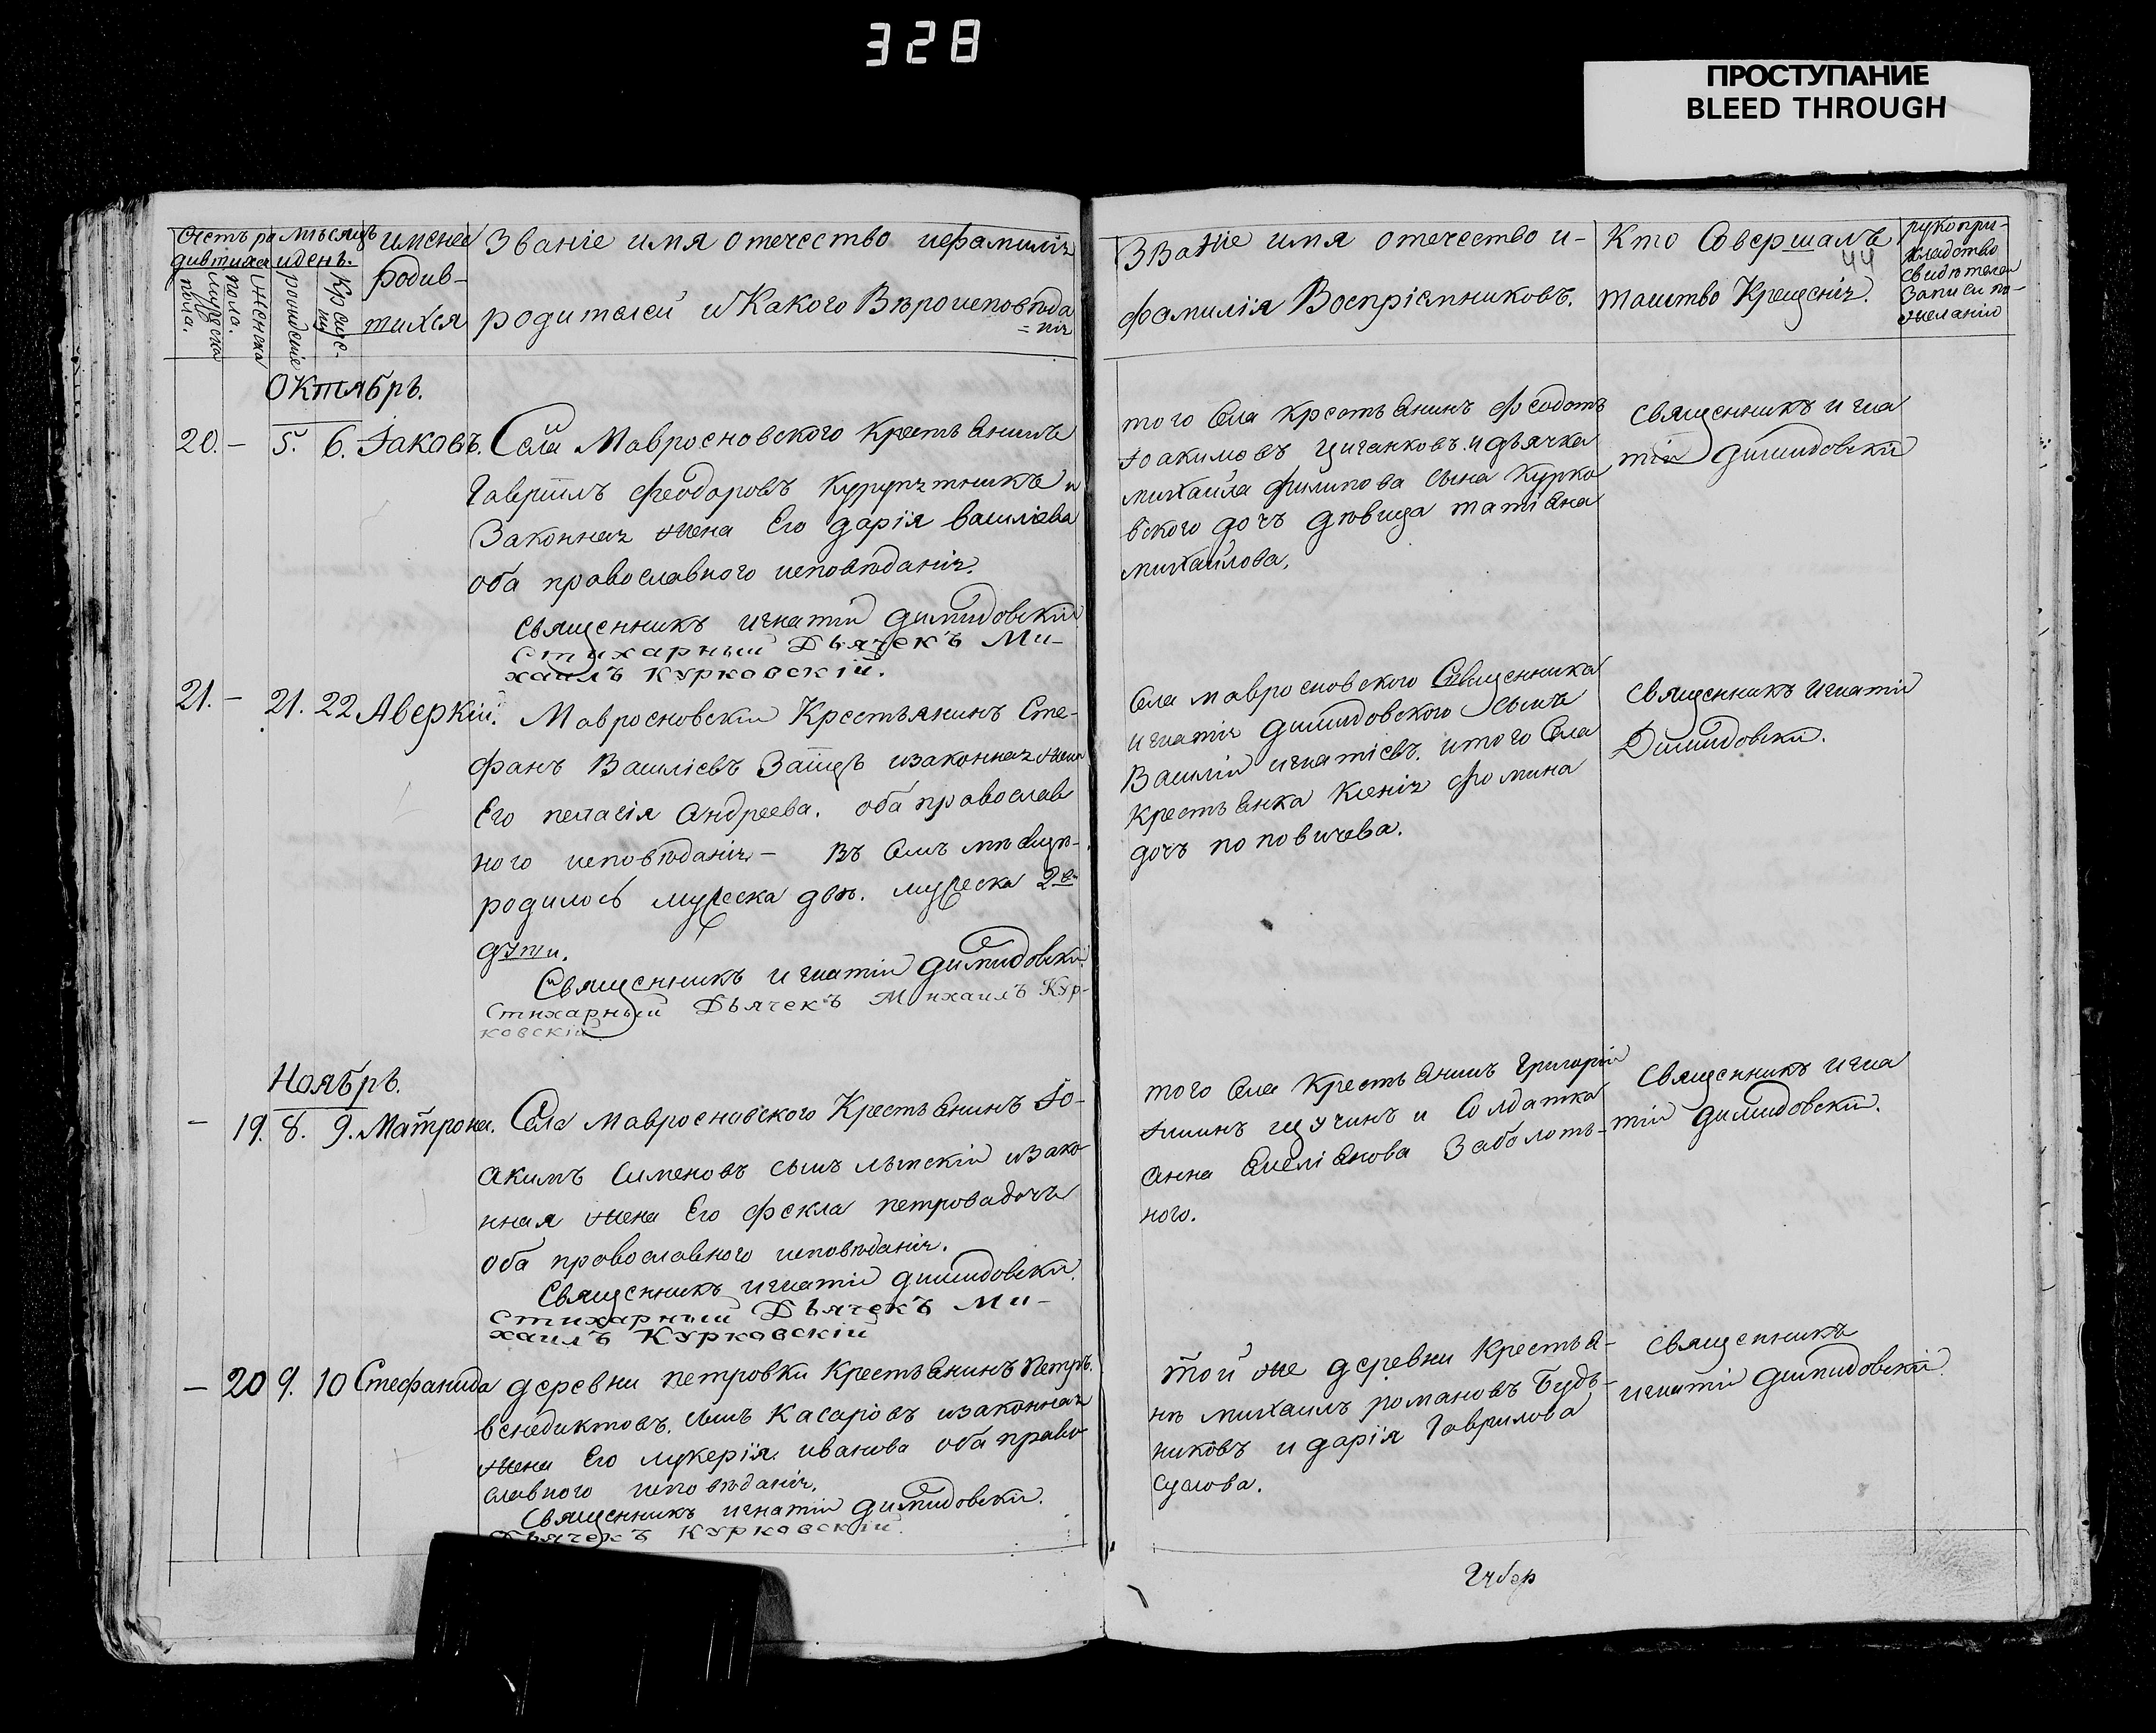 328
ПРОСТУПАНИЕ
BLEED THROUGH
Счетъ ро мѣсяцъ
дившихся и день.
мужеска пола.
женска пола.
рождение
Креще-
имена
Родив-
шихся
Званіе имя отечество и фамиліи
родителей и Какого Вѣроисповѣда
=нія
Званіе имя отечество и-
фамилія Воспріемниковъ.
Кто Совершалъ
44
таинство Крещенія.
рукопри-
кладство
свидѣтелей
записи по-
желанію
Октябрь.
20. – 5. 6. Іаковъ.
Села Мавросновского Крестьянинъ
Гавріилъ Феодоровъ и
Законная жена Его Дарія Василіева
оба православного исповѣданія.
Священникъ Игнатій Димидовскій
Стихарный Дьячекъ Ми-
хаилъ Курковскій.
того Села Крестьянинъ Феодотъ
Іоакимовъ Циганковъ. и дьячка
Михаила Филипова сына Курко
вского дочь дѣвица Татіана
Михайлова.
Священникъ Игна
тій Димидовскій
21. – 21. 22 Аверкій.
Мавросновскій Крестьянинъ Сте-
фанъ Василіевъ Заіецъ и законная жена
Его Пелагія Андреева. оба православ
ного исповѣданія – Въ Семъ мѣсяцѣ-
родилось мужеска двѣ. мужеска 2ва
дѣти.
Священникъ Игнатій Димидовскій
Стихарный Дьячекъ Михаилъ Кур-
ковскій
Села Мавросновского Священника
Игнатія Димидовского сынъ
Василій Игнатіевъ. и того Села
Крестьянка Ксенія Фомина
дочь Поповичева.
Священникъ Игнатій
Димидовскій.
Ноябрь.
– 19. 8. 9. Матрона.
Села Мавросновского Крестьянинъ Іо-
акимъ Сименовъ сынъ и зако
нная жена Его Фекла Петрова дочь
оба православного исповѣданія.
Священникъ Игнатій Димидовскій.
Стихарный Дьячекъ Ми-
хаилъ Курковскій
того Села Крестьянинъ Григорій
Щучинъ и Солдатка
Анна Емеліянова Заболоть-
ного.
Священникъ Игна
тій Димидовскій.
– 20 9. 10 Стефанида
деревни Петровки Крестьянинъ Петръ.
Венедиктовъ. сынъ Касаріовъ и законная
жена Его Лукерія Иванова оба право
славного исповѣданія.
Священникъ Игнатій Димидовскій.
Дьячекъ Курковскій.
той же деревни Крестья-
нѣ Михаилъ Романовъ Будь-
никовъ и Дарія Гаврилова
Суслова.
Священникъ
Игнатій Димидовскій.